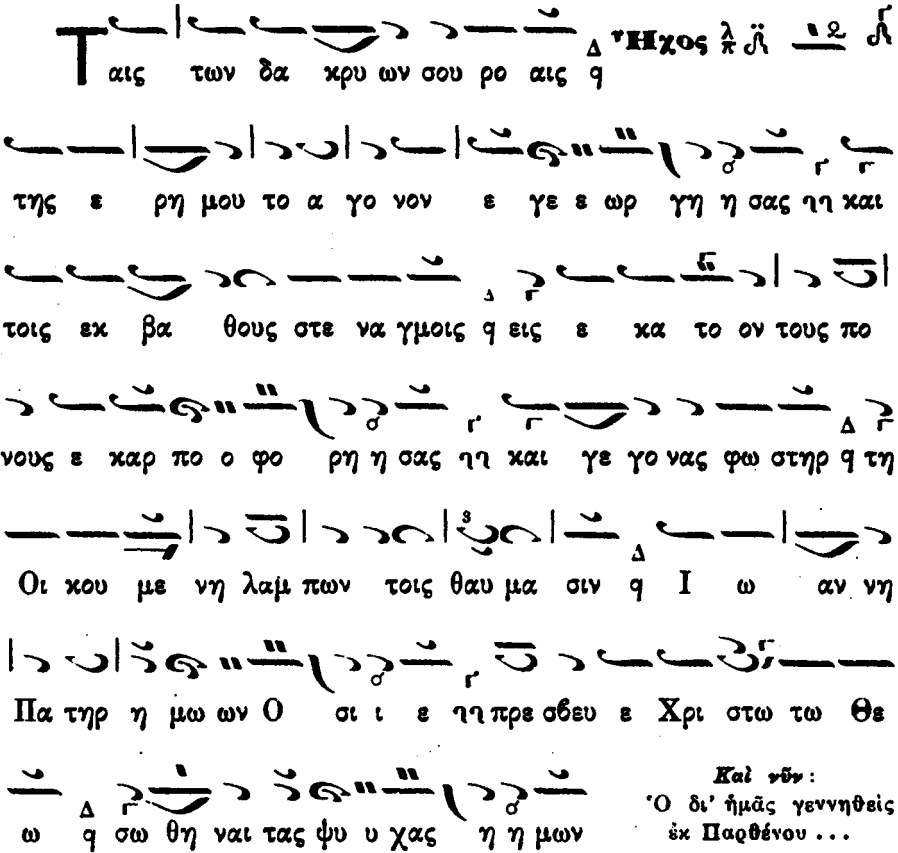 Ταις των δα κρυ ων σου ρο αις Δ q Ἦχος λ π
της ε ρη μου το α γο νον ε γε ε ωρ γη η σας και
τοις εκ βα θους στε να γμοις q εις ε κα το ον τους πο
νους ε καρ πο ο φο ρη η σας και γε γο νας φω στηρ q τη
Οι κου με νη λαμ πων τοις θαυ μα σιν q Ι ω αν νη
Πα τηρ η μω ων Ο σι ι ε πρε σβευ ε Χρι στω τω Θε
ω q σω θη ναι τας ψυ υ χας η η μων
Καὶ νῦν:
Ὁ δι' ἡμᾶς γεννηθεὶς
ἐκ Παρθένου ...